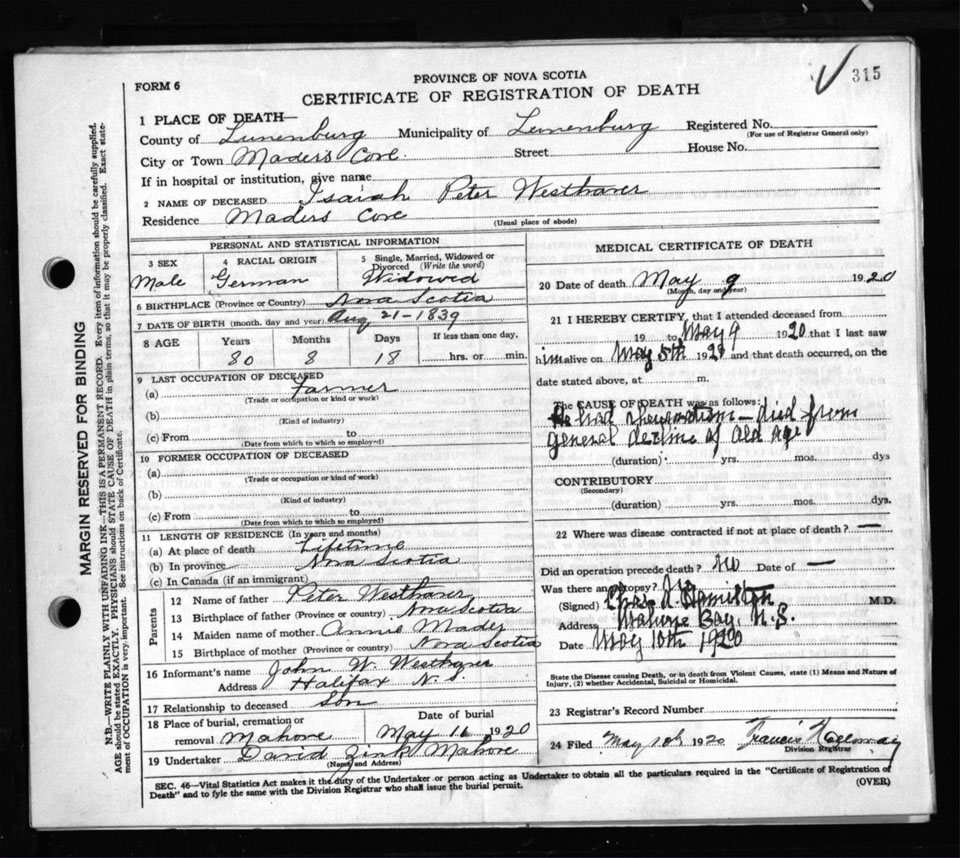 315
PROVINCE OF NOVA SCOTIA
FORM 6
CERTIFICATE OF REGISTRATION OF DEATH
MARGIN RESERVED FOR BINDING
N.B.—WRITE PLAINLY WITH UNFADING INK—THIS IS A PERMANENT RECORD. Every item of information should be carefully supplied.
AGE should be stated EXACTLY. PHYSICIANS should STATE CAUSE OF DEATH in plain terms, so that it may be properly classified. Exact statement of OCCUPATION is very important. See instructions on back of Certificate.
1 PLACE OF DEATH—
County of Lunenburg Municipality of Lunenburg Registered No.
(For use of Registrar General only)
City or Town Maders Cove Street House No.
If in hospital or institution, give name
2 NAME OF DECEASED Isaiah Peter Westhaver
Residence Maders Cove
(Usual place of abode)
PERSONAL AND STATISTICAL INFORMATION
3 SEX 4 RACIAL ORIGIN 5 Single, Married, Widowed or Divorced (Write the word)
Male German Widowed
6 BIRTHPLACE (Province or Country) Nova Scotia
7 DATE OF BIRTH (month, day and year) Aug 21-1839
8 AGE Years Months Days If less than one day.
80 8 18 hrs. or min.
9 LAST OCCUPATION OF DECEASED
(a) Farmer
(Trade or occupation or kind of work)
(b)
(Kind of industry)
(c) From to
(Date from which to which so employed)
10 FORMER OCCUPATION OF DECEASED
(a)
(Trade or occupation or kind of work)
(b)
(Kind of industry)
(c) From to
(Date from which to which so employed)
11 LENGTH OF RESIDENCE (In years and months)
(a) At place of death Lifetime
(b) In province Nova Scotia
(c) In Canada (if an immigrant)
Parents
12 Name of father Peter Westhaver
13 Birthplace of father (Province or country) Nova Scotia
14 Maiden name of mother Annie Mader
15 Birthplace of mother (Province or country) Nova Scotia
16 Informant's name John W. Westhaver
Address Halifax N. S.
17 Relationship to deceased Son
18 Place of burial, cremation or removal Mahone
Date of burial May 11 1920
19 Undertaker David Zink Mahone
(Name and Address)
MEDICAL CERTIFICATE OF DEATH
20 Date of death May 9 1920
(Month, day and year)
21 I HEREBY CERTIFY, that I attended deceased from
19 to May 9 1920 that I last saw
him alive on May 5th 1920 and that death occurred, on the
date stated above, at m.
The CAUSE OF DEATH was as follows:
He had rheumatism – died from
general decline of old age
(duration) yrs. mos. dys
CONTRIBUTORY
(Secondary)
(duration) yrs. mos. dys.
22 Where was disease contracted if not at place of death? —
Did an operation precede death? No Date of —
Was there an autopsy? No
(Signed) Chas. A. Hamilton M.D.
Address Mahone Bay, N. S.
Date May 10th 1920
State the Disease causing Death, or in death from Violent Causes, state (1) Means and Nature of
Injury, (2) whether Accidental, Suicidal or Homicidal.
23 Registrar's Record Number
24 Filed May 10th 1920 Francis
Division Registrar
SEC. 46—Vital Statistics Act makes it the duty of the Undertaker or person acting as Undertaker to obtain all the particulars required in the "Certificate of Registration of
Death" and to fyle the same with the Division Registrar who shall issue the burial permit.
(OVER)